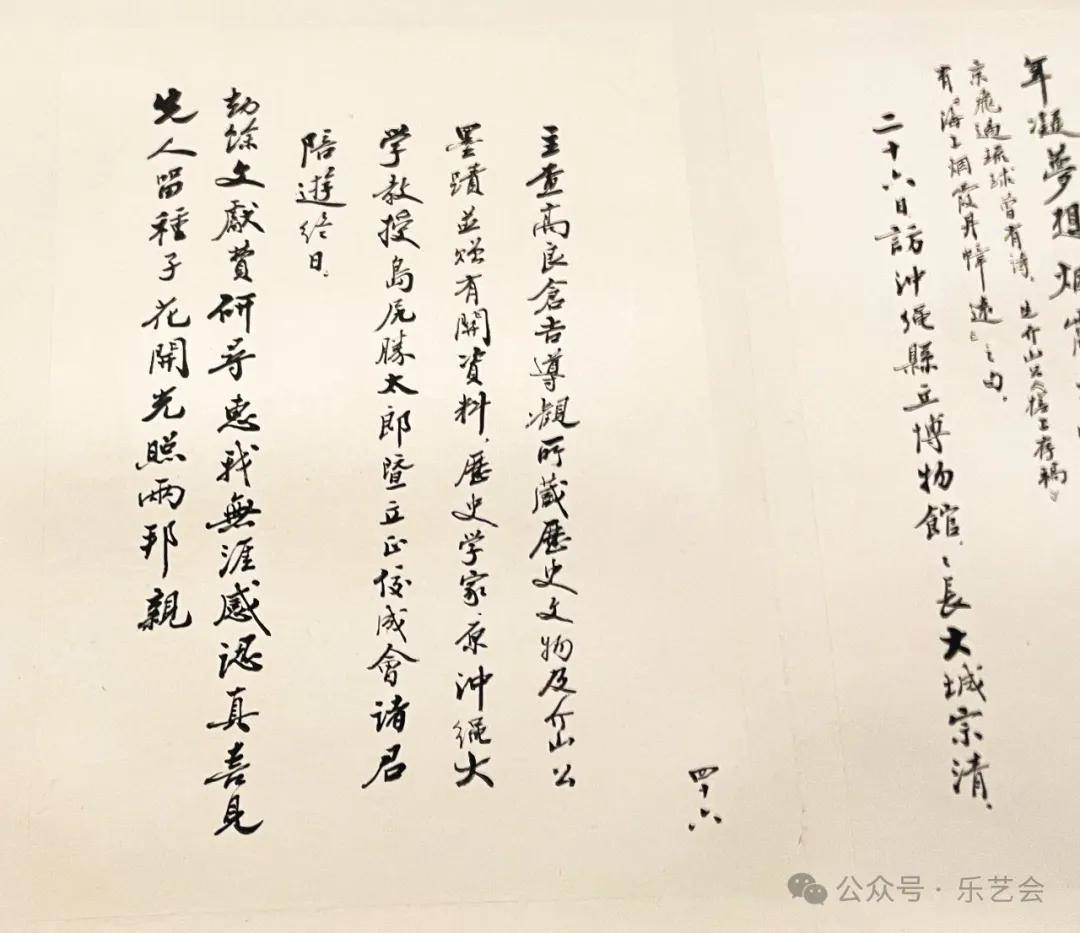 年凝夢想烟
京飛過琉球曾有詩，先介山公《槎上存稿》
有“海上烟霞丹幛遠”之句。
二十六日訪沖繩縣立博物館，〻長大城宗清，
四十六
主查高良倉吉導觀所藏歷史文物及介山公
墨蹟並贈有關資料，歷史学家、原沖繩大
学教授島尻勝太郎暨立正佼成會諸君
陪遊終日。
劫餘文獻費研尋惠我無涯感認真喜見
先人留種子花開光照兩邦親
公众号·乐艺会